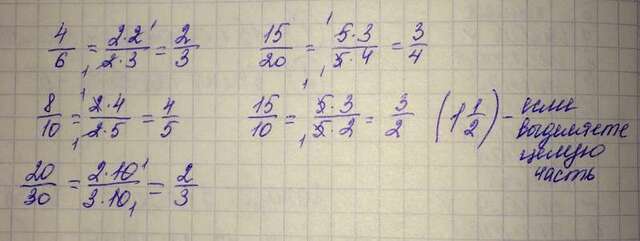 4/6 = 2·2/2·3 = 2/3
15/20 = 5·3/5·4 = 3/4
8/10 = 2·4/2·5 = 4/5
15/10 = 5·3/5·2 = 3/2 (1 1/2) - если
выделяете
целую
часть
20/30 = 2·10/3·10 = 2/3